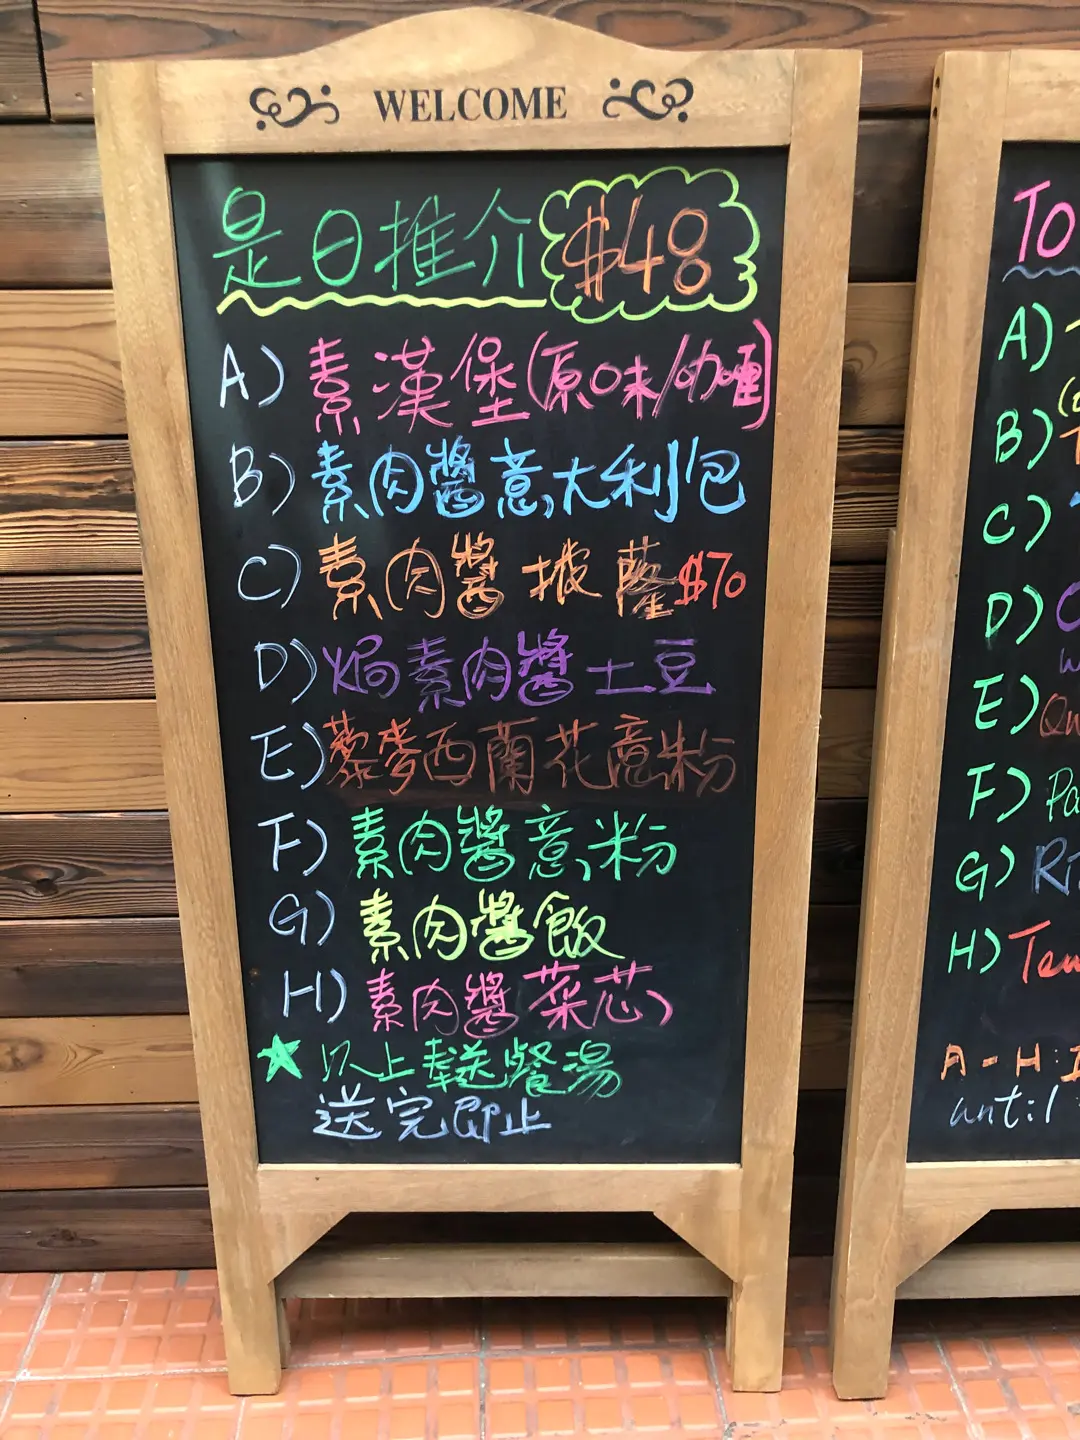 WELCOME
是日推介 $48
A) 素漢堡(原味/咖喱)
B) 素肉醬意大利包
C) 素肉醬披薩 $70
D) 焗素肉醬土豆
E) 藜麥西蘭花意粉
F) 素肉醬意粉
G) 素肉醬飯
H) 素肉醬菜芯
★ 以上奉送餐湯
送完即止
TO
A)
B)
C)
D)
E) Qu
F) Pa
G) Ri
H) Tem
A-H:
until